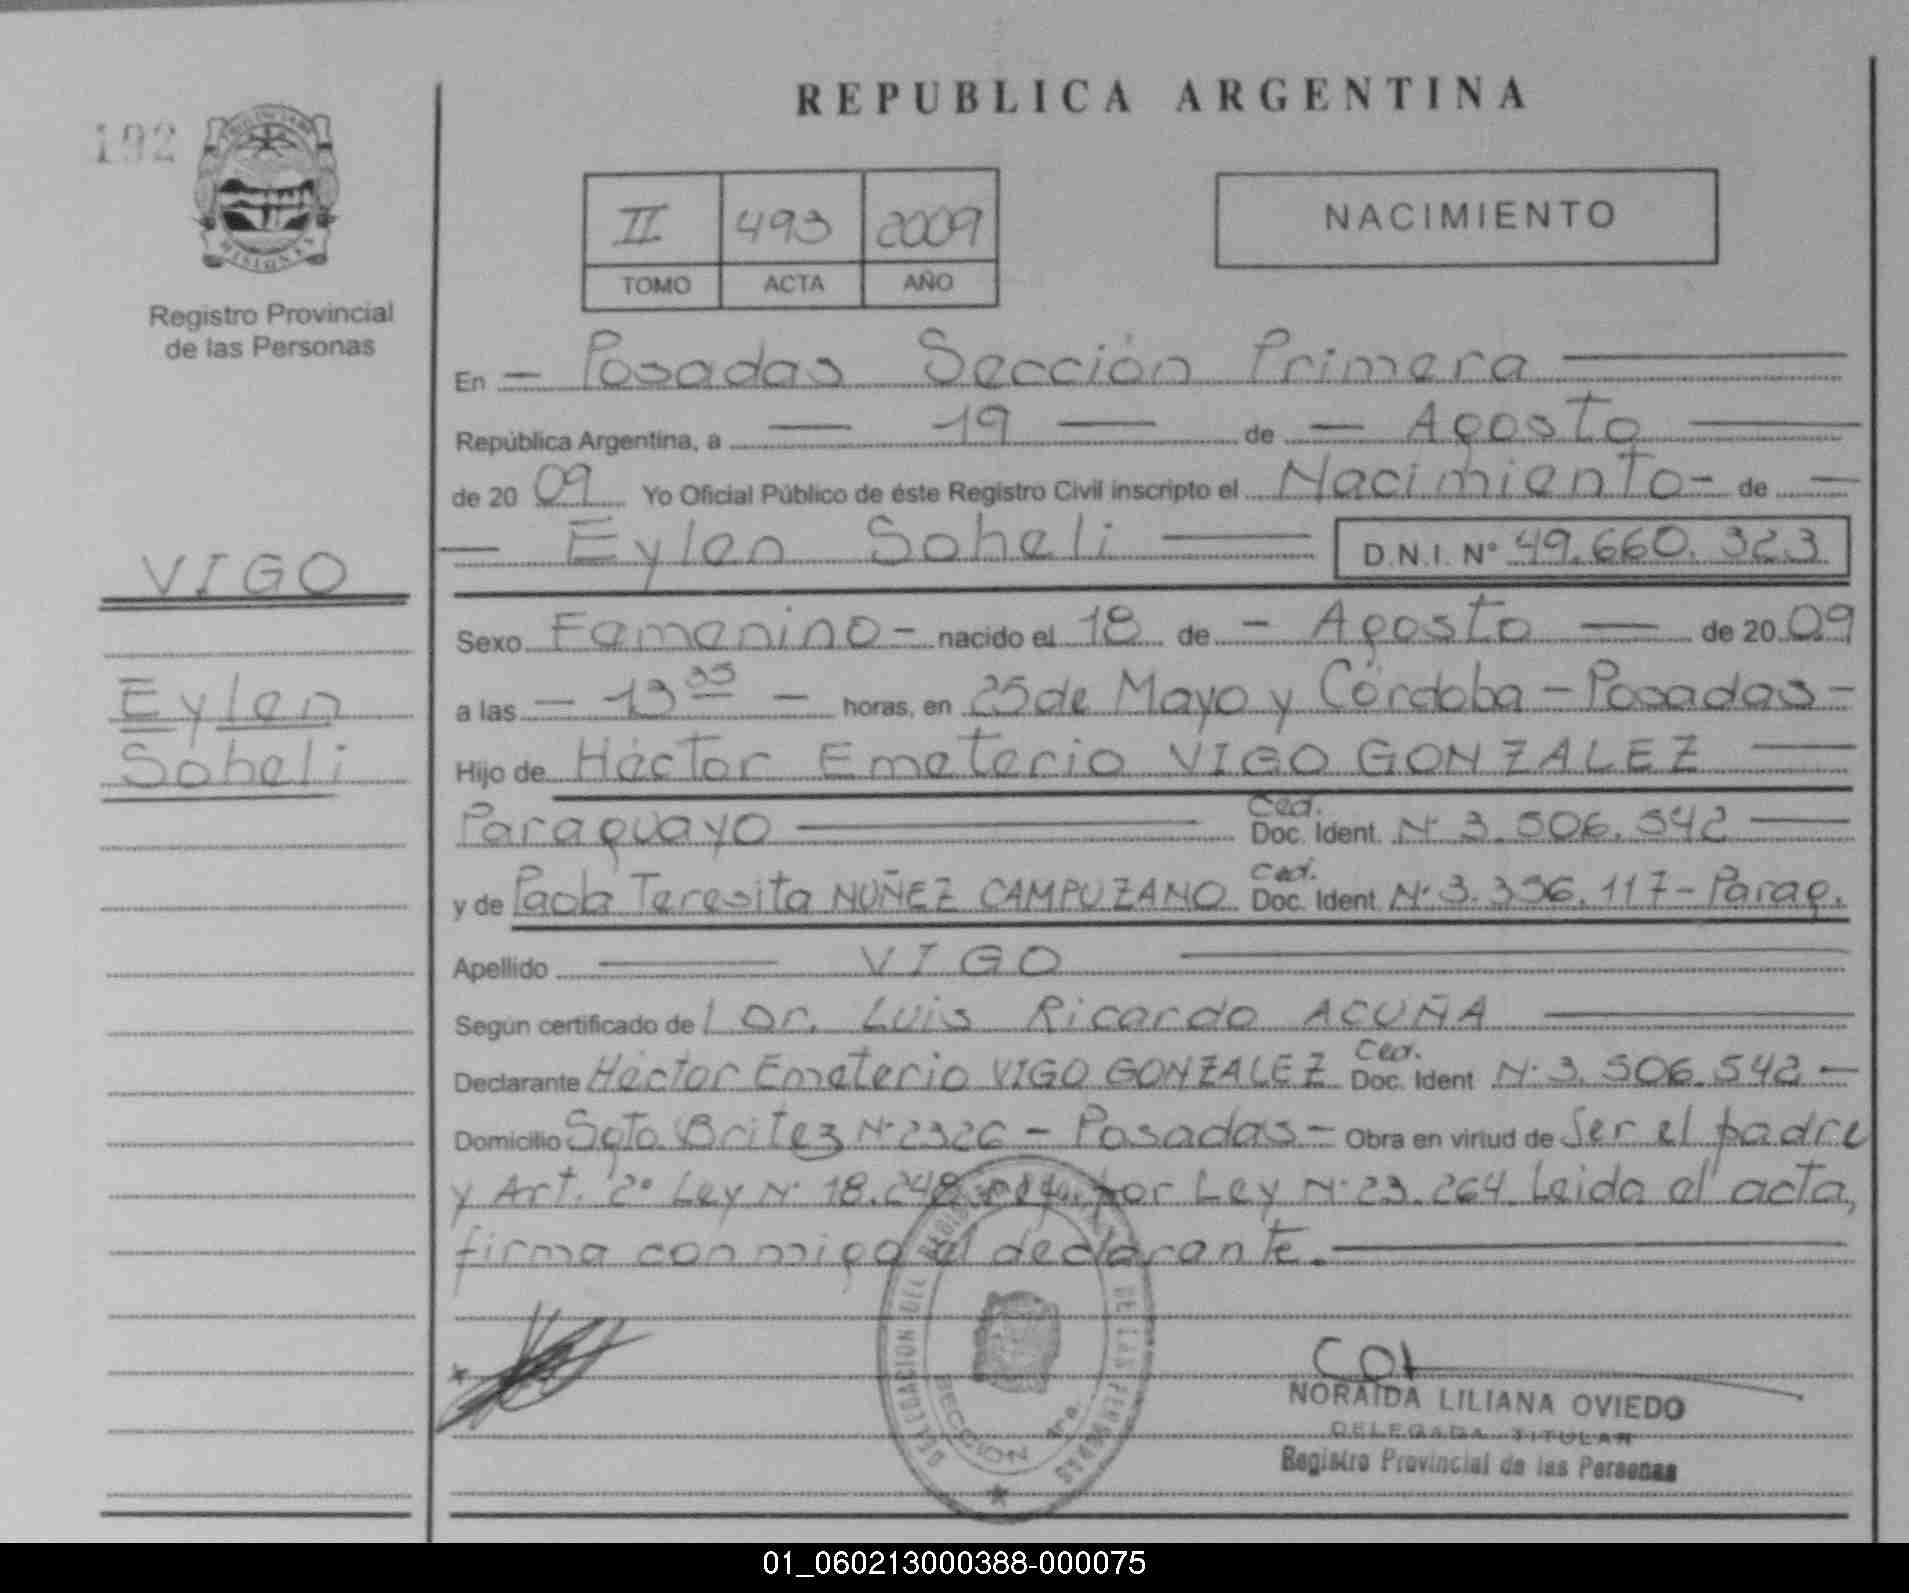 REPUBLICA ARGENTINA
192
PROVINCIA DE
MISIONES
Registro Provincial
de las Personas
II 493 2009
TOMO ACTA AÑO
NACIMIENTO
En - Posadas Sección Primera
República Argentina, a - 19 - de - Agosto
de 20 09 Yo Oficial Público de éste Registro Civil inscripto el Nacimiento - de -
- Eylen Soheli - D.N.I. N° 49.660.323
VIGO
Eylen
Soheli
Sexo Femenino - nacido el 18 de - Agosto - de 20 09
a las - 13 35 - horas, en 25 de Mayo y Córdoba - Posadas -
Hijo de Héctor Emeterio VIGO GONZALEZ
Paraguayo Céd. Doc. Ident. N° 3.506.542
y de Paola Teresita NUÑEZ CAMPUZANO Céd. Doc. Ident. N° 3.336.117 - Parag.
Apellido VIGO
Según certificado de l Dr. Luis Ricardo ACUÑA
Declarante Héctor Emeterio VIGO GONZALEZ Céd. Doc. Ident N° 3.506.542 -
Domicilio Sgto. Britez N° 2326 - Posadas - Obra en virtud de Ser el padre
y Art. 2° Ley N° 18.248 por Ley N° 23.264. Leida el acta,
firma conmigo el declarante.
DELEGACION DEL REGISTRO DE LAS PERSONAS
SECCION 1ra.
NORAIDA LILIANA OVIEDO
DELEGADA TITULAR
Registro Provincial de las Personas
01_060213000388-000075